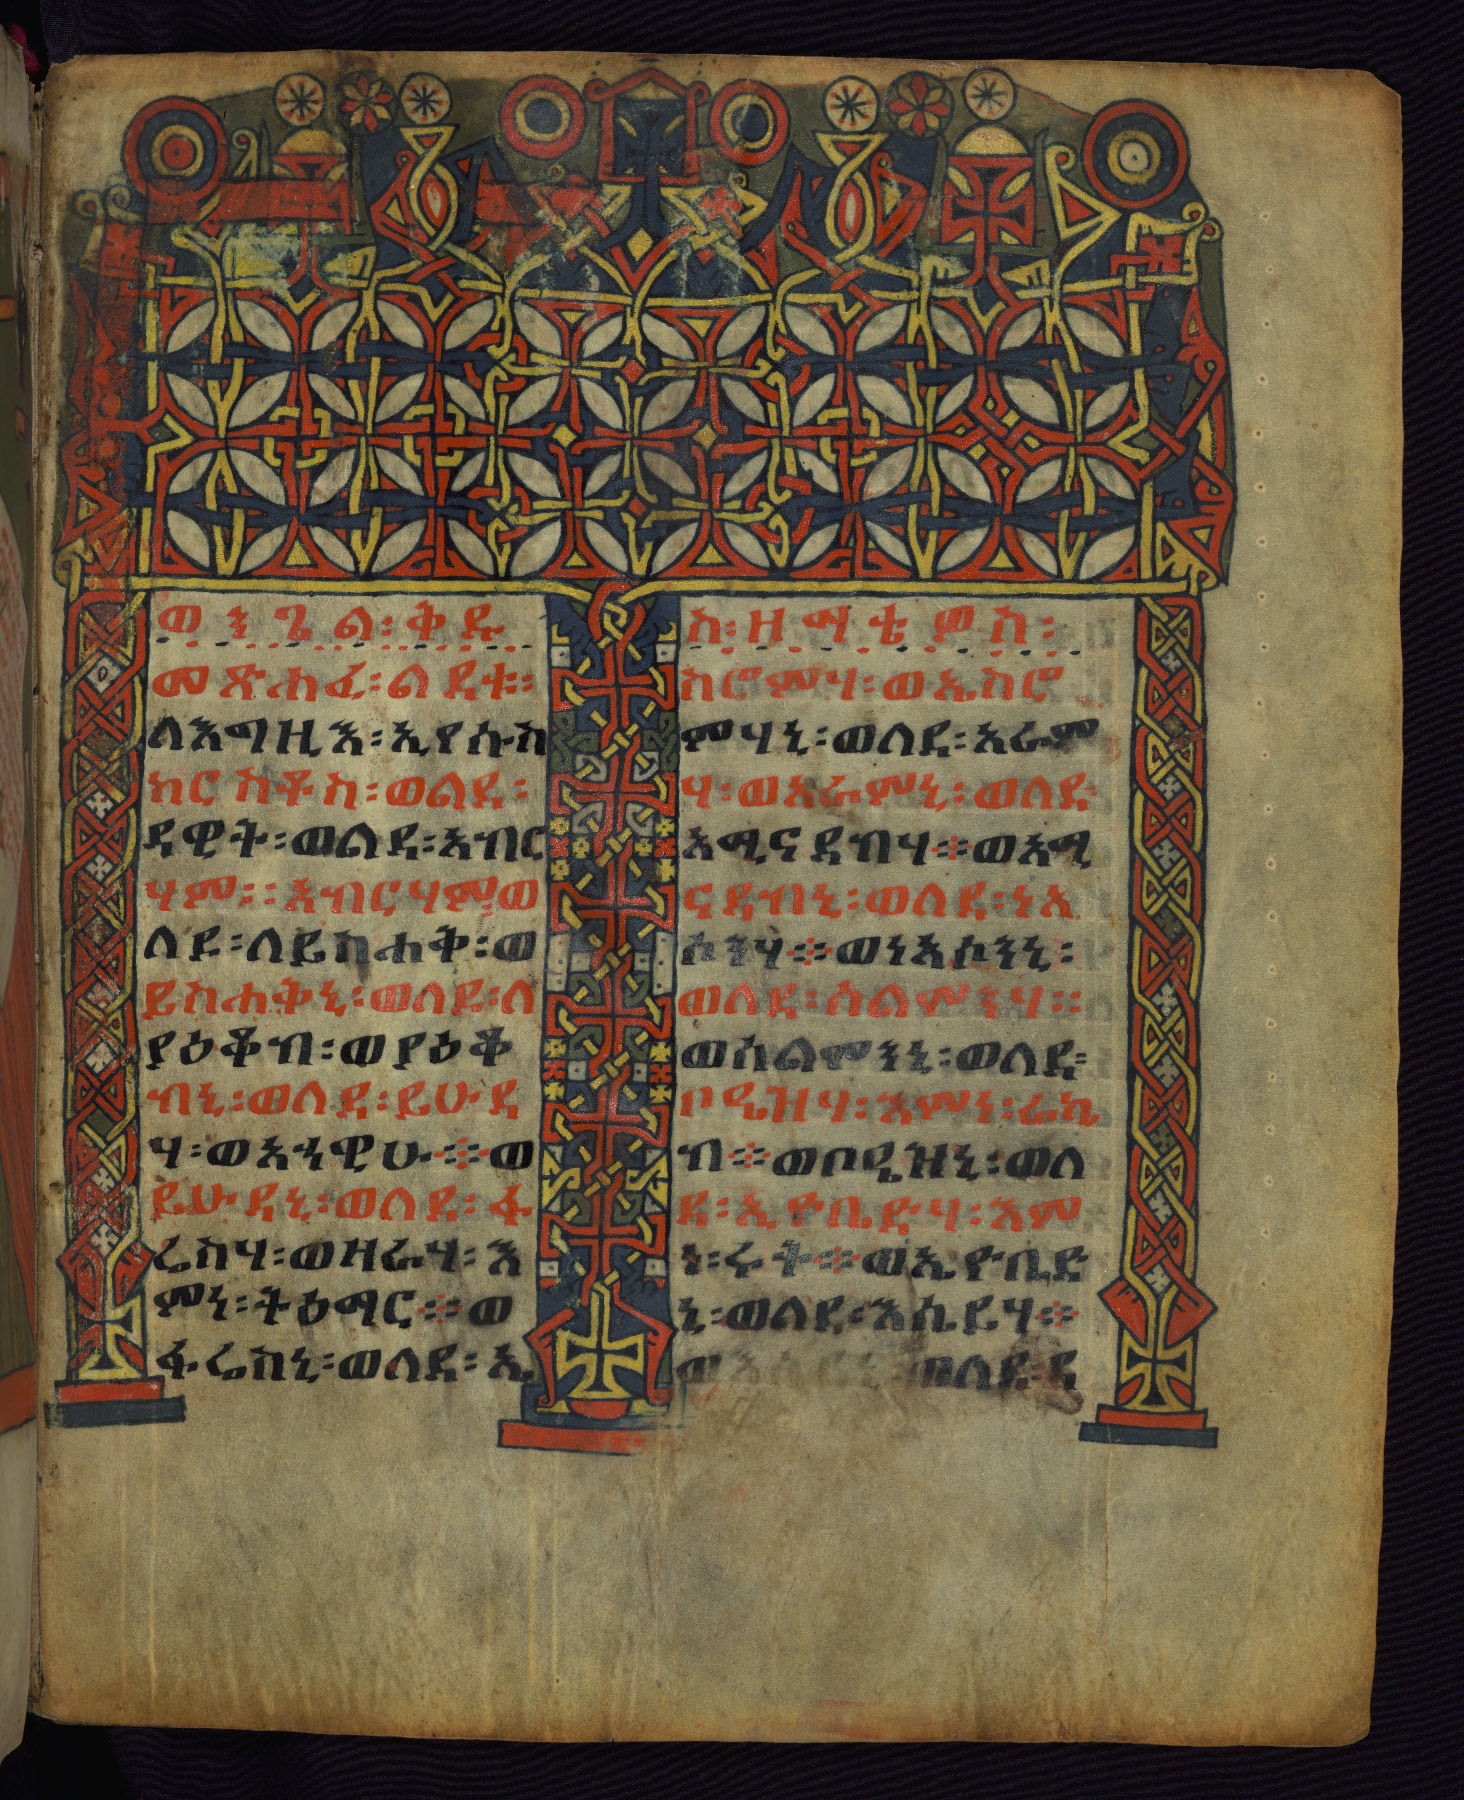 ወንጌል፡ቅዱ
መጽሐፈ፡ልደቱ፡
ለእግዚእ፡ኢየሱስ
ክርስቶስ፡ወልደ፡
ዳዊት፡ወልደ፡አብር
ሃም፡፡አብርሃምወ
ለደ፡ለይስሐቅ፡ወ
ይስሐቅኒ፡ወለደ፡ለ
ያዕቆብ፡ወያዕቆ
ብኒ፡ወለደ፡ይሁዳ
ሃ፡ወአኃዊሁ፨ወ
ይሁዳኒ፡ወለደ፡ፋ
ሬስሃ፡ወዘራሃ፡እ
ምነ፡ትዕማር፨ወ
ፋሬስኒ፡ወለደ፡ኤ
ስ፡ዘማቴዎስ፡
ስሮምሃ፡ወኤስሮ
ምሃኒ፡ወለደ፡አራም
ሃ፡ወአራምኒ፡ወለደ፡
አሚናዳብሃ፨ወአሚ
ናዳብኒ፡ወለደ፡ነአ
ሶንሃ፨ወነአሶንኒ፡
ወለደ፡ሰልምንሃ፡፡
ወሰልምንኒ፡ወለደ፡
ቦዔዝሃ፡እምነ፡ራኬ
ብ፨ወቦዔዝኒ፡ወለ
ደ፡ኢዮቤድሃ፡እም
ነ፡ሩት፨ወኢዮቤድ
ኒ፡ወለደ፡እሴይሃ፨
ወለደ፡ዳ